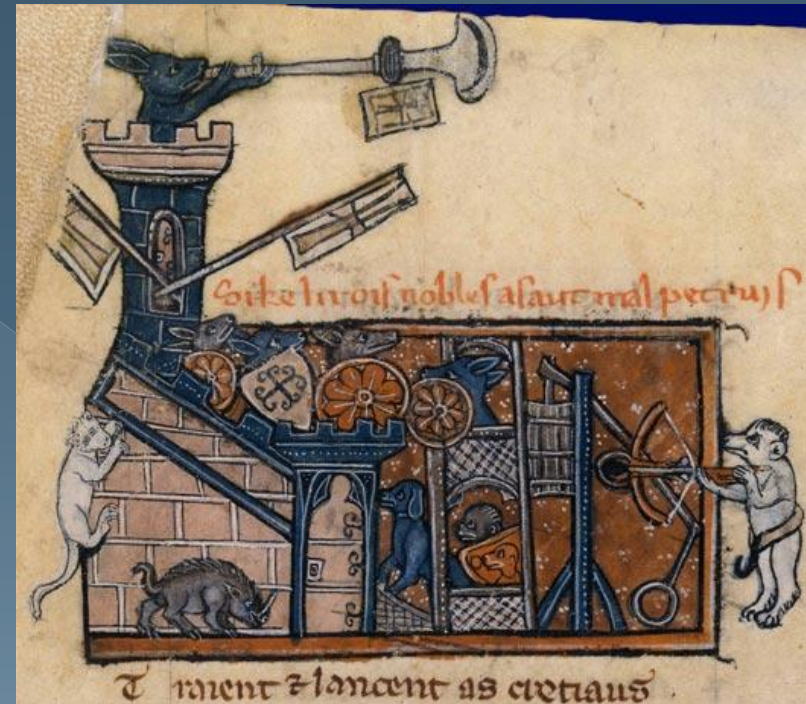 li rois nobles asaut mal
T raient ⁊ lancent as cretiaus .